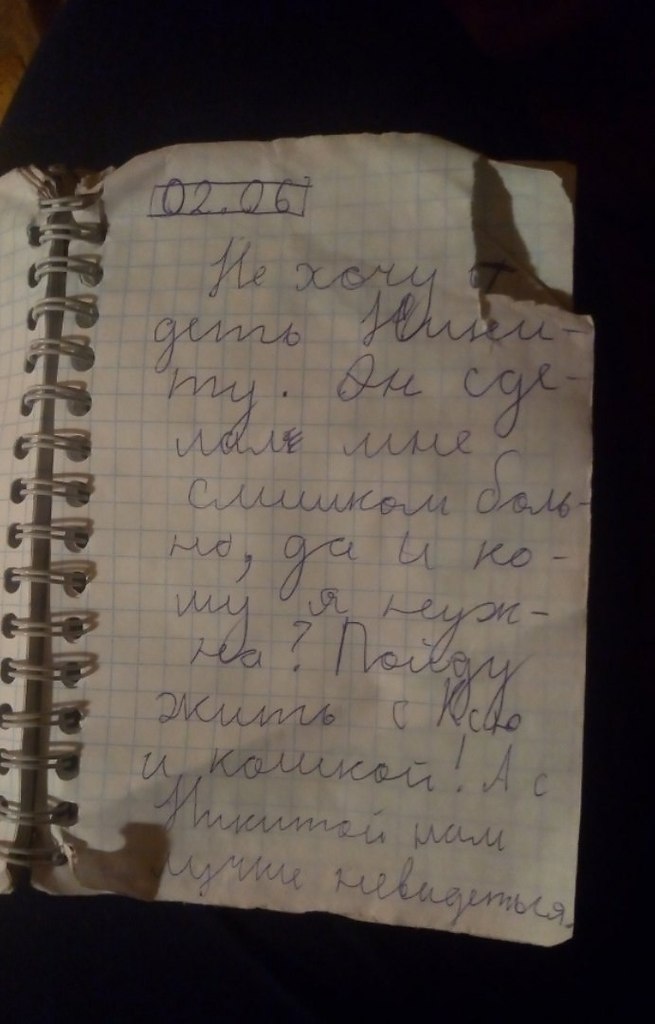 02.06
Не хочу
деть Ники-
ту. Он сде-
лал мне
слишком боль-
но, да и ко-
му я неуж-
на? Пойду
жить с Ксю
и кошкой! А с
Никитой нам
лучше невидеться.